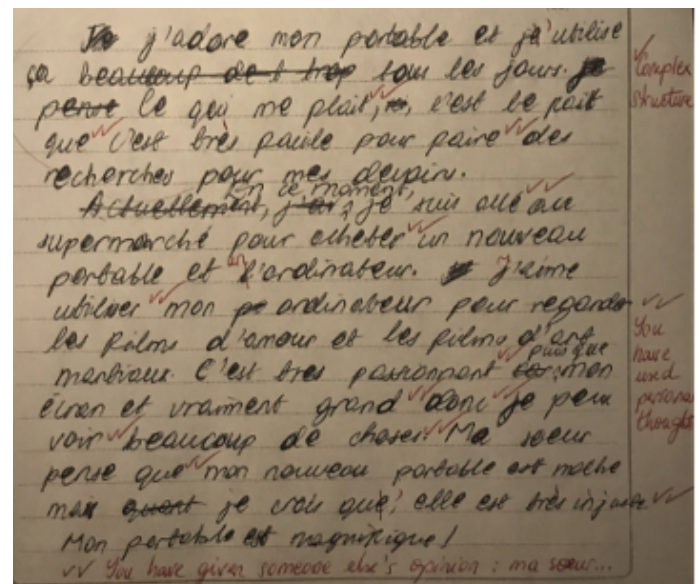 j'adore mon portable et j'utilise
ça beaucoup de t trop tous les jours. je
pense le qui me plaît, c'est le fait
que c'est très facile pour faire des
recherches pour mes devoirs.
En ce moment,
Actuellement, j'ai, je suis allé au
supermarché pour acheter un nouveau
portable et l'ordinateur. J'aime
utiliser mon ordinateur pour regarder
les films d'amour et les films d'art
puisque
martiaux. C'est très passionnant mon
écran et vraiment grand donc je peux
voir beaucoup de choses. Ma soeur
pense que mon nouveau portable est moche
mais quant je crois que, elle est très injuste
Mon portable est magnifique!
✓✓ You have given someone else's opinion : ma soeur...
✓ Complex
structure
✓✓
You
have
used
personal
thoughts